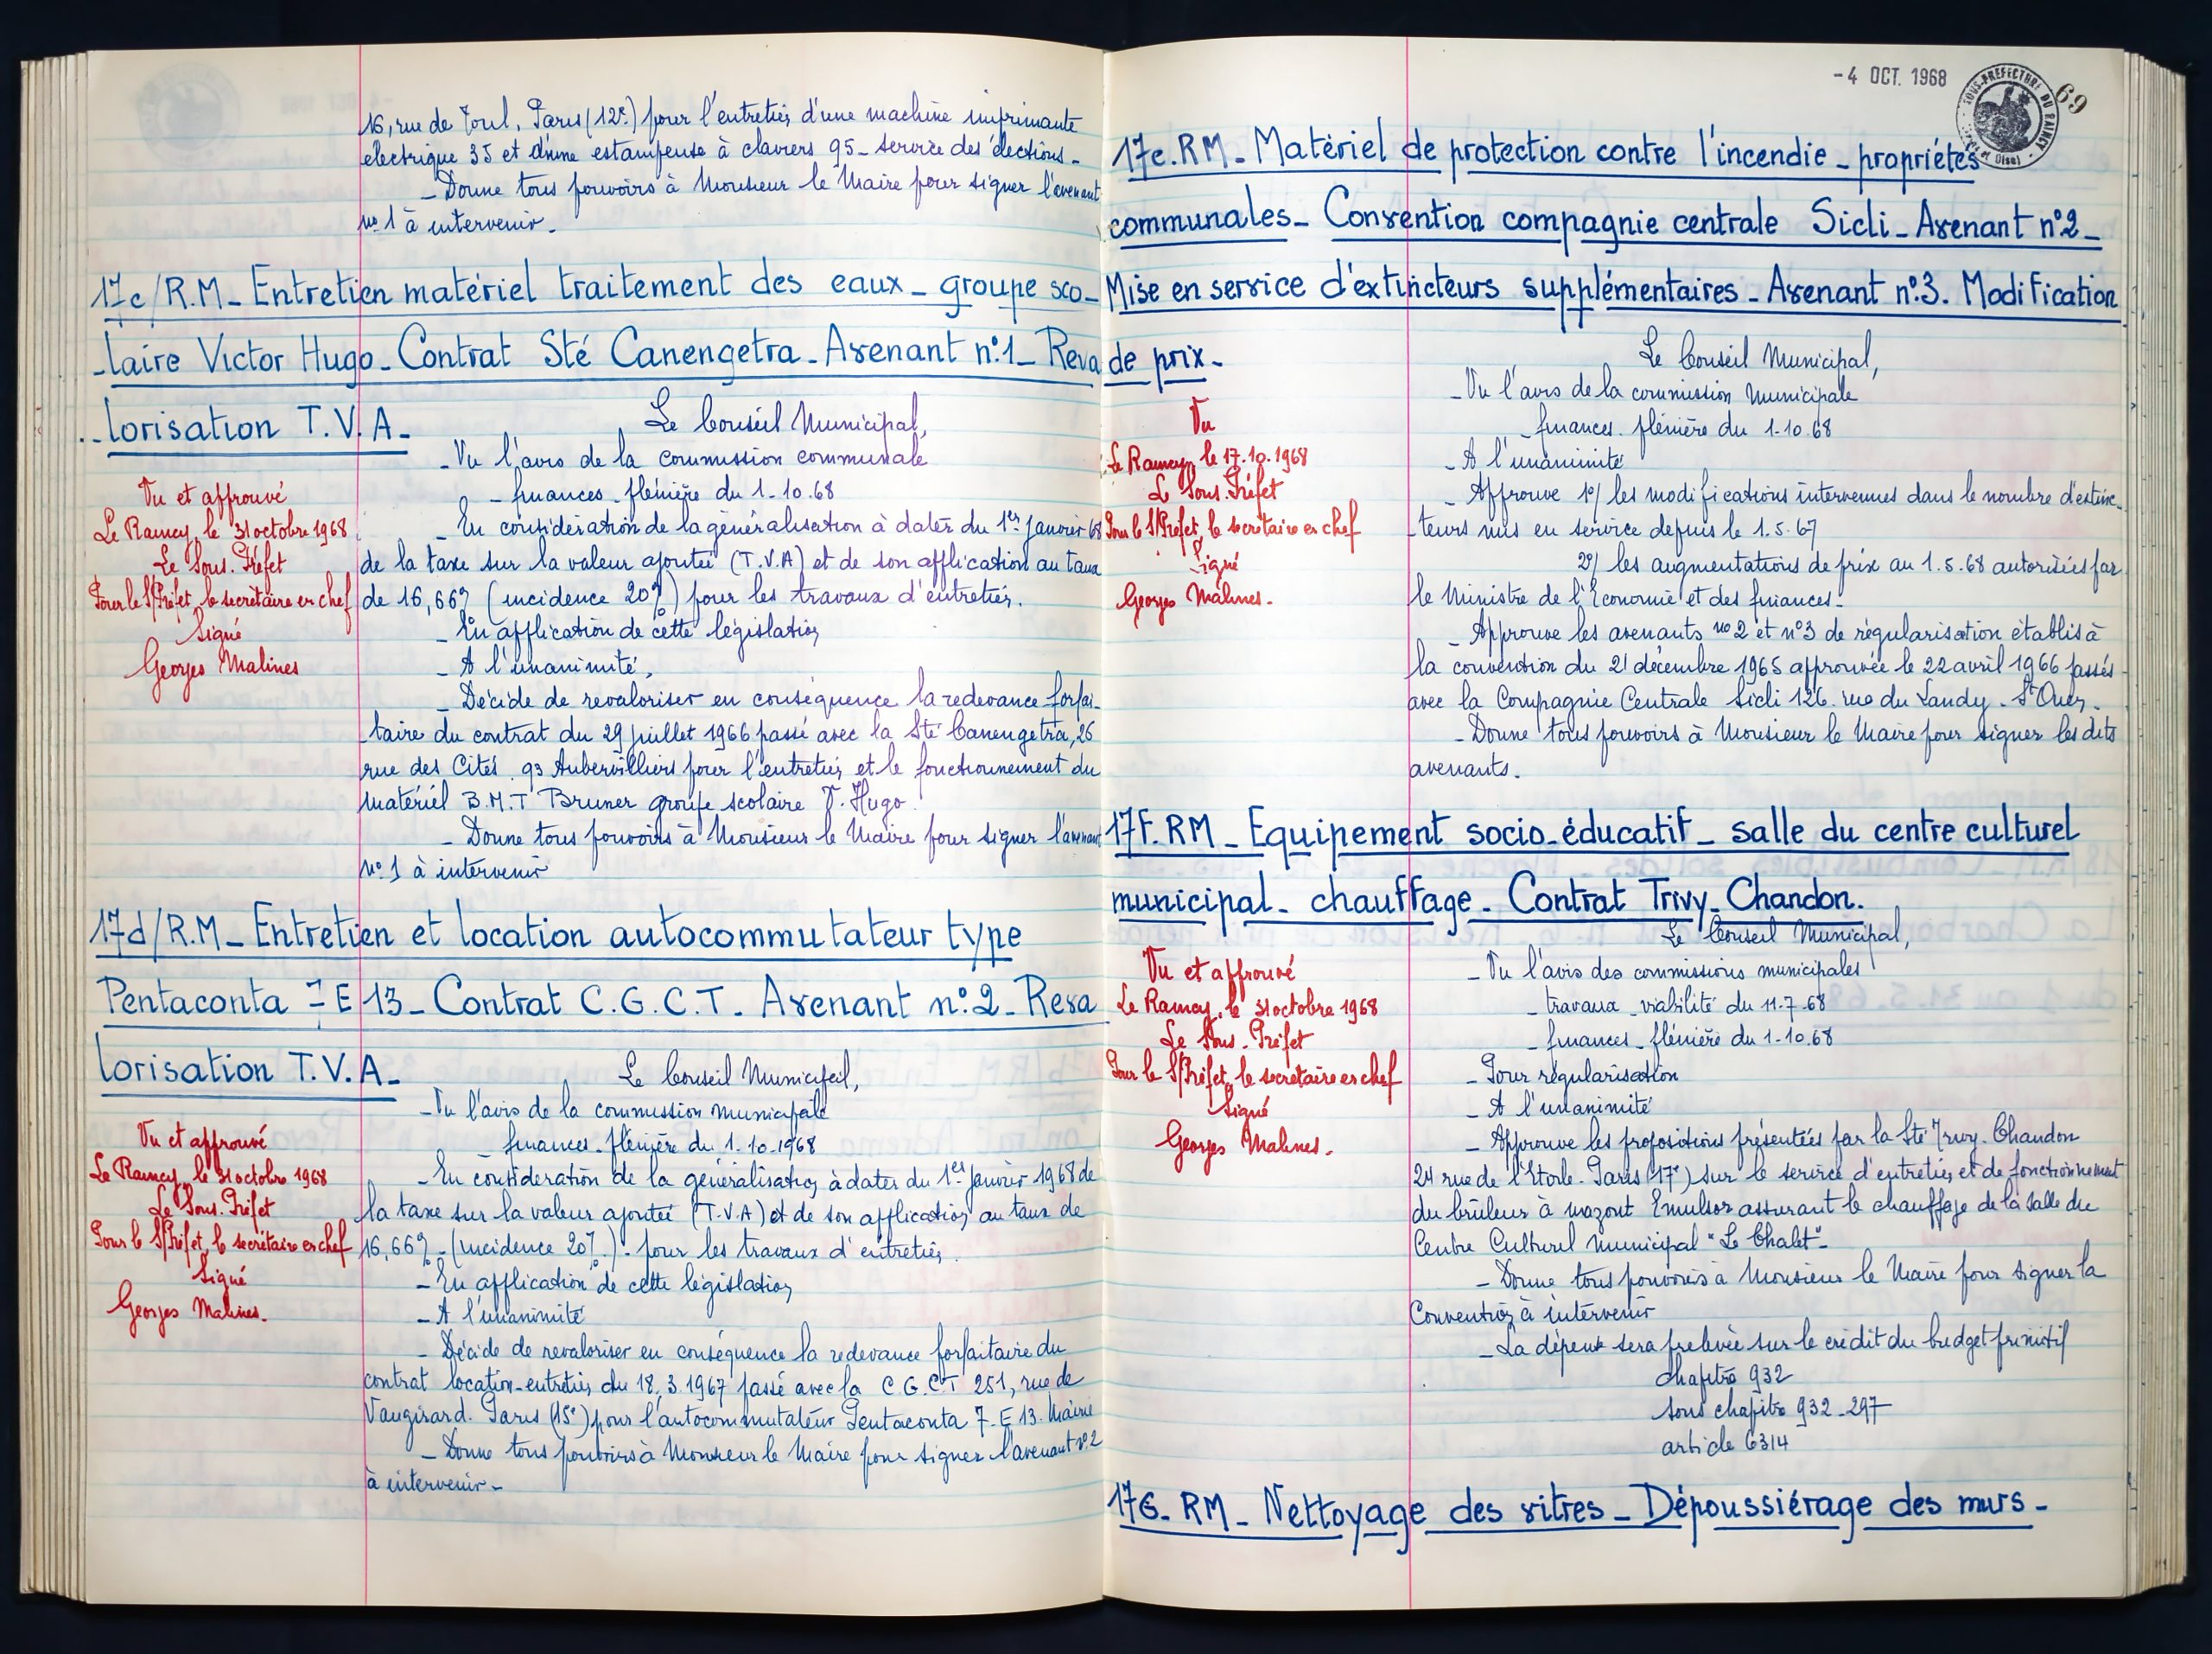 16, rue de Toul, Paris (12e) pour l'entretien d'une machine imprimante
electrique 35 et d'une estampeuse à claviers 95_ service des élections_
_ Donne tous pouvoirs à Monsieur le Maire pour signer l'avenant
no 1 à intervenir_
17c/R.M_ Entretien matériel traitement des eaux_ groupe sco_
_laire Victor Hugo_ Contrat Sté Canengetra_ Avenant n°1_ Reva
_lorisation T.V.A_
Le Conseil Municipal,
_ Vu l'avis de la commission communale
_ finances_ plénière du 1-10.68
_ En considération de la généralisation à dater du 1er Janvier 68
de la taxe sur la valeur ajoutée (T.V.A) et de son application au taux
de 16,66% (incidence 20%) pour les travaux d'entretien.
_ En application de cette législation
_ A l'unanimité,
_ Décide de revaloriser en conséquence la redevance forfai_
taire du contrat du 29 juillet 1966 passé avec la Sté Canengetra, 26
rue des Cités. 93 Aubervilliers pour l'entretien et le fonctionnement du
matériel B.M.T Bruner groupe scolaire V. Hugo.
_ Donne tous pouvoirs à Monsieur le Maire pour signer l'avenant
no 1 à intervenir
Vu et approuvé
Le Raincy, le 31 octobre 1968
Le Sous. Préfet
Pour le S/Préfet, le secrétaire en chef
Signé
Georges Malines
17d/R.M_ Entretien et location autocommutateur type
Pentaconta 7_E 13_ Contrat C.G.C.T_ Avenant n°2_ Reva
lorisation T.V.A_
Le Conseil Municipal,
_ Vu l'avis de la commission municipale
finances_ plénière du 1.10.1968
_ En considération de la généralisation à dater du 1er Janvier 1968 de
la taxe sur la valeur ajoutée (T.V.A) et de son application au taux de
16,66%_ (incidence 20%). pour les travaux d'entretien.
_ En application de cette législation
_ A l'unanimité
_ Décide de revaloriser en conséquence la redevance forfaitaire du
contrat location_entretien du 18.3.1967 passé avec la C.G.C.T 251, rue de
Vaugirard. Paris (15e) pour l'autocommutateur Pentaconta 7_E 13. Mairie
_ Donne tous pouvoirs à Monsieur le Maire pour signer l'avenant no 2
à intervenir_
Vu et approuvé
Le Raincy, le 31 octobre 1968
Le Sous. Préfet
Pour le S/Préfet, le secrétaire en chef
Signé
Georges Malines.
-4 OCT. 1968
SOUS-PREFECTURE DU RAINCY
69
17e.RM_ Matériel de protection contre l'incendie_ propriétés
communales_ Convention compagnie centrale Sicli_ Avenant n°2_
Mise en service d'extincteurs supplémentaires_ Avenant n°3. Modification
de prix_
Le Conseil Municipal,
_ Vu l'avis de la commission municipale
_ finances. plénière du 1-10.68
_ A l'unanimité
_ Approuve 1°/ les modifications intervenues dans le nombre d'extinc_
_teurs mis en service depuis le 1.5.67
2°/ les augmentations de prix au 1.5.68 autorisées par
le Ministre de l'Economie et des finances_
_ Approuve les avenants no 2 et n°3 de régularisation établis à
la convention du 21 décembre 1965 approuvée le 22 avril 1966 passés
avec la Compagnie Centrale Sicli 126. rue du Landy_ St Ouen_
_ Donne tous pouvoirs à Monsieur le Maire pour signer les dits
avenants.
Vu
Le Raincy, le 17.10.1968
Le Sous. Préfet
Pour le S/Préfet, le secrétaire en chef
Signé
Georges Malines_
17F.RM_ Equipement socio_éducatif_ salle du centre culturel
municipal_ chauffage_ Contrat Trivy_Chandon.
Le Conseil Municipal,
_ Vu l'avis des commissions municipales
_ travaux_ viabilité du 11-7-68
_ finances_ plénière du 1-10.68
_ Pour régularisation
_ A l'unanimité
_ Approuve les propositions présentées par la Sté Trivy. Chandon
24 rue de l'Etoile. Paris (17e) sur le service d'entretien et de fonctionnement
du brûleur à mazout Emulsor assurant le chauffage de la salle du
Centre Culturel municipal "Le Chalet"_
_ Donne tous pouvoirs à Monsieur le Maire pour signer la
Convention à intervenir
_ La dépense sera prelevée sur le crédit du budget primitif
chapitre 932
sous chapitre 932-297
article 6314
Vu et approuvé
Le Raincy, le 31 octobre 1968
Le Sous_ Préfet
Pour le S/Préfet, le secrétaire en chef
Signé
Georges Malines_
17G_ RM_ Nettoyage des vitres_ Dépoussiérage des murs_